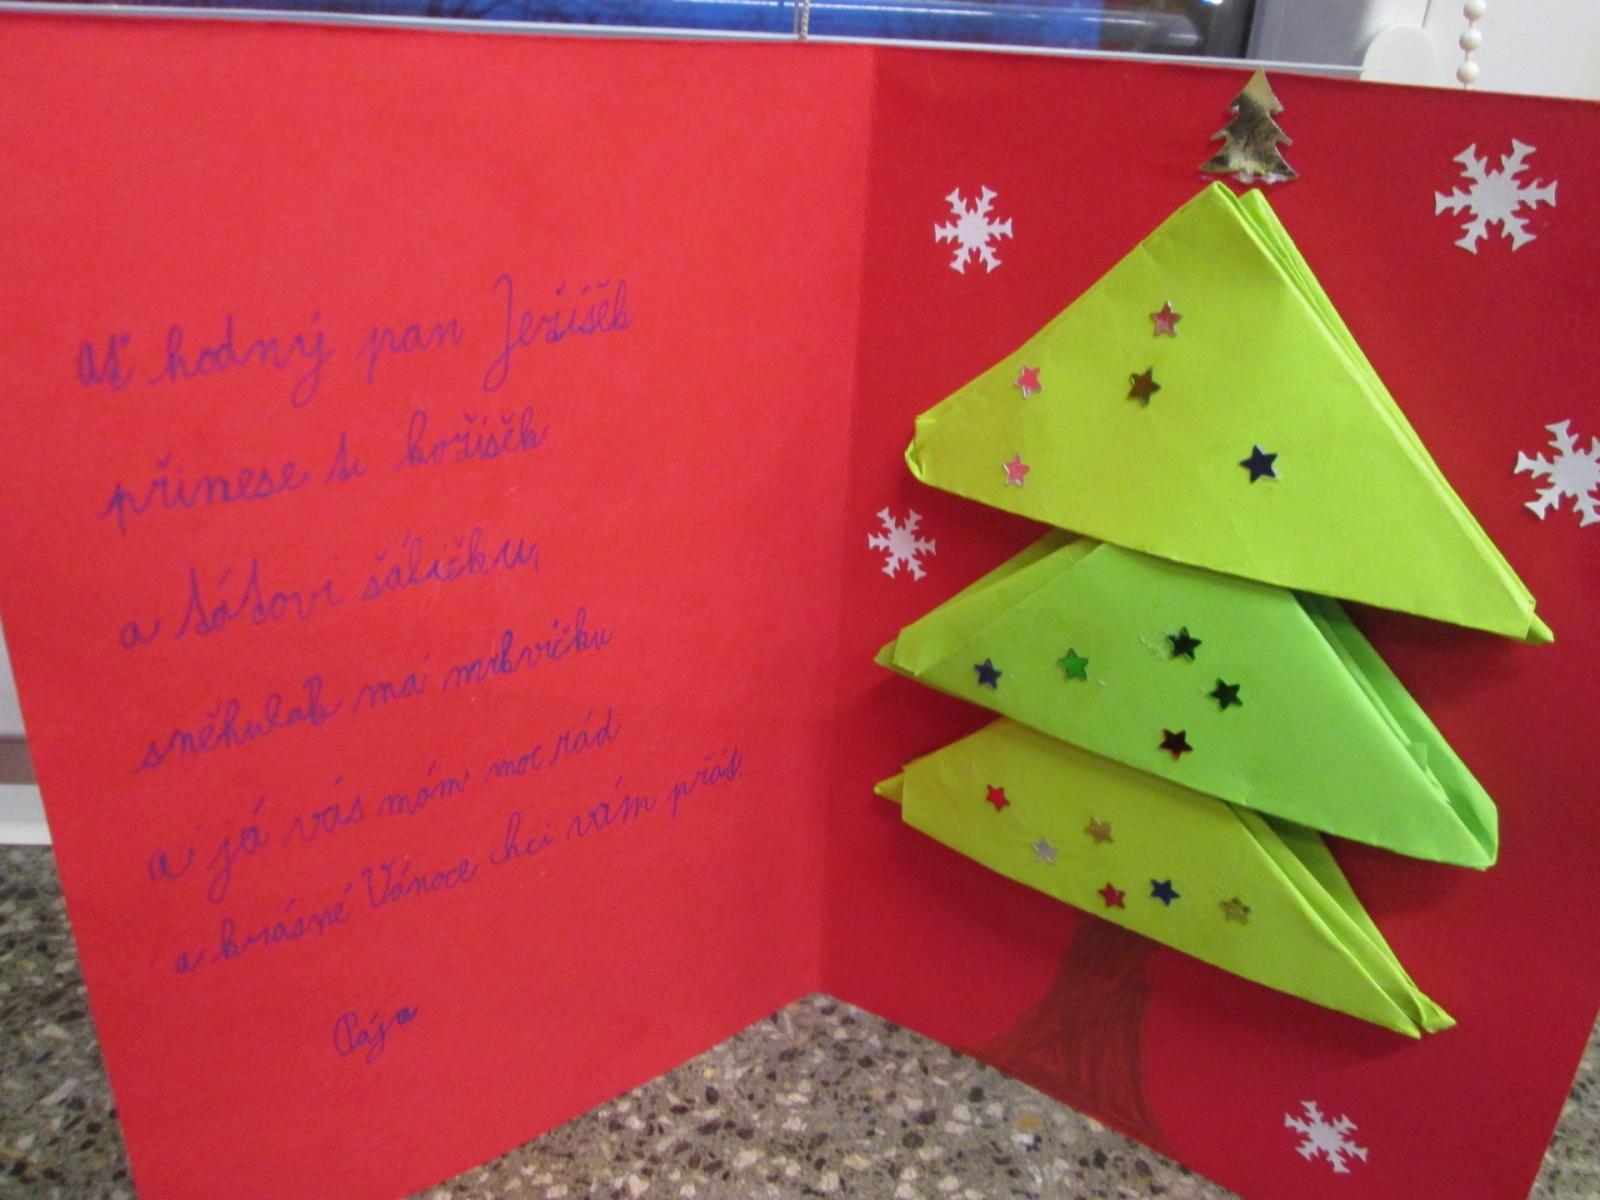 Ať hodný pan Ježíšěk
přinese ti božíšěk
a táťovi šáličku,
sněhulak má mrkvičku
a já vás mám moc rád
a krásné Vánoce chci vám přát.
Pája